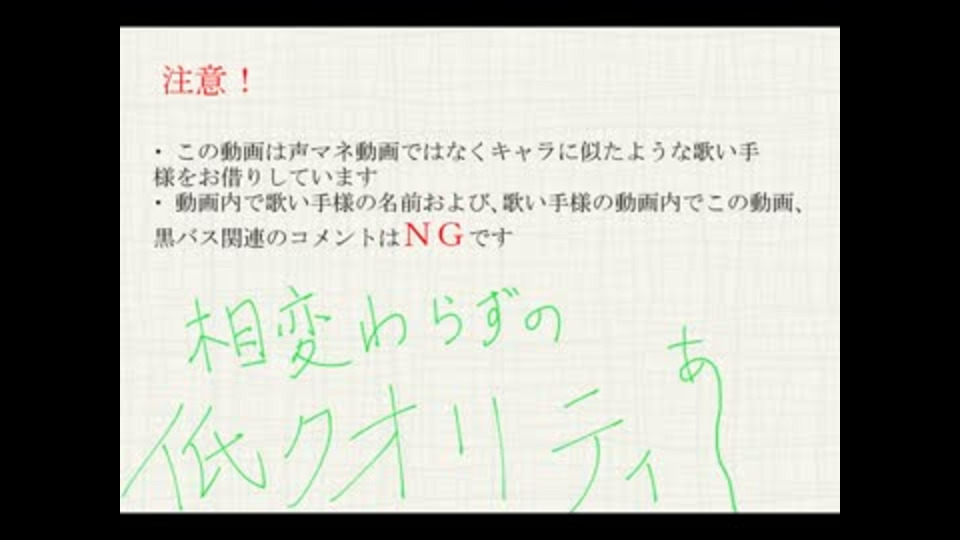 注意！
・ この動画は声マネ動画ではなくキャラに似たような歌い手
様をお借りしています
・ 動画内で歌い手様の名前および、歌い手様の動画内でこの動画、
黒バス関連のコメントはＮＧです
相変わらずの
低クオリティ
あ